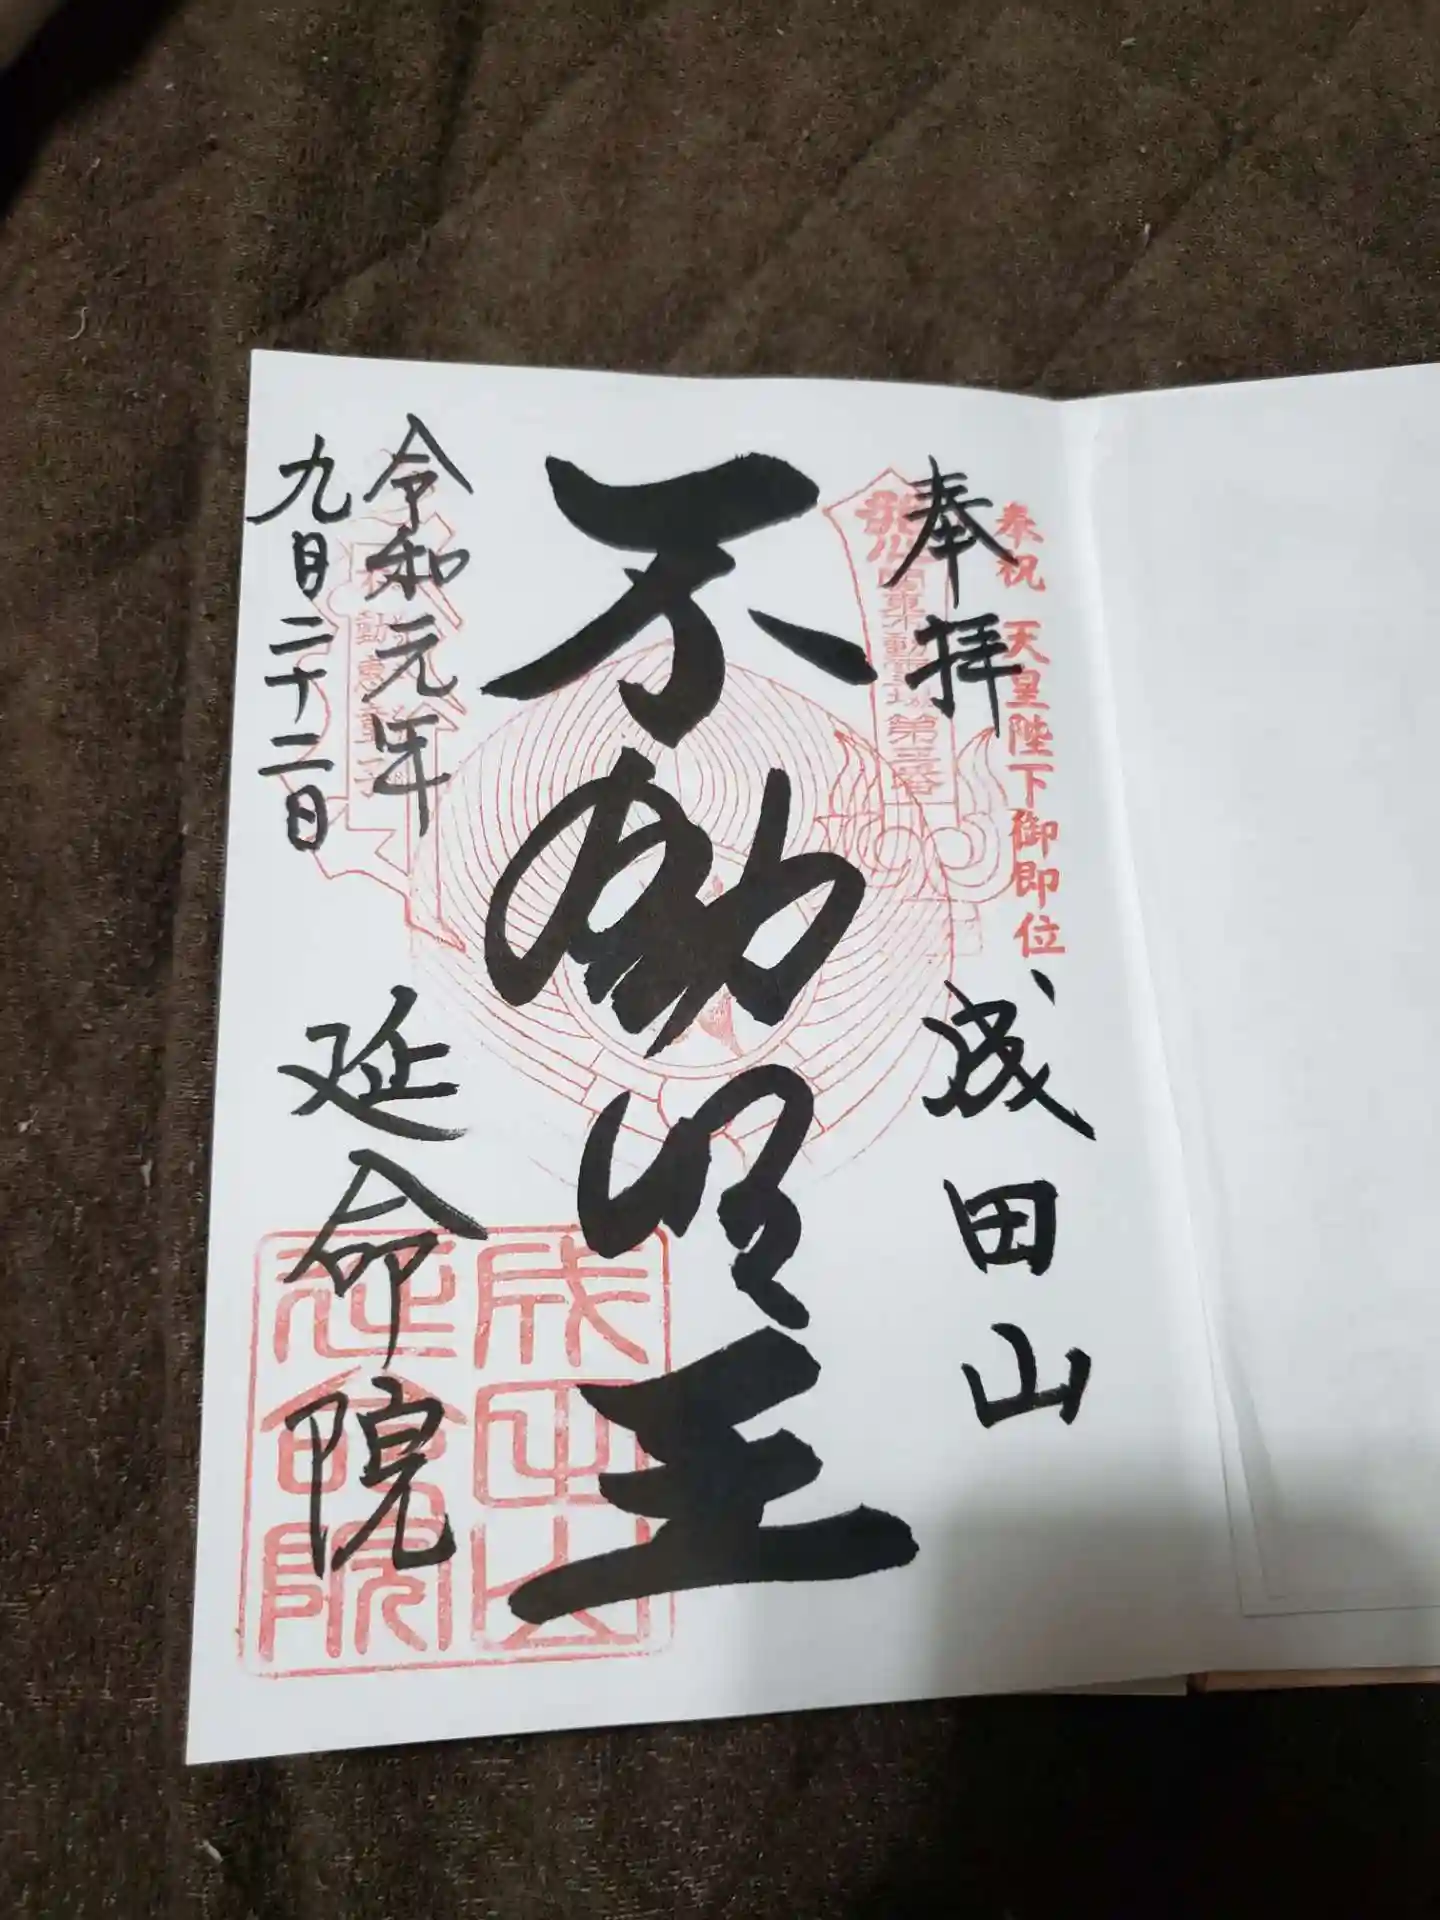 奉祝 天皇陛下御即位
奉拝
成田山
関東不動霊場 第三番
不動明王
令和元年
九月二十二日
延命院
成田山
延命院